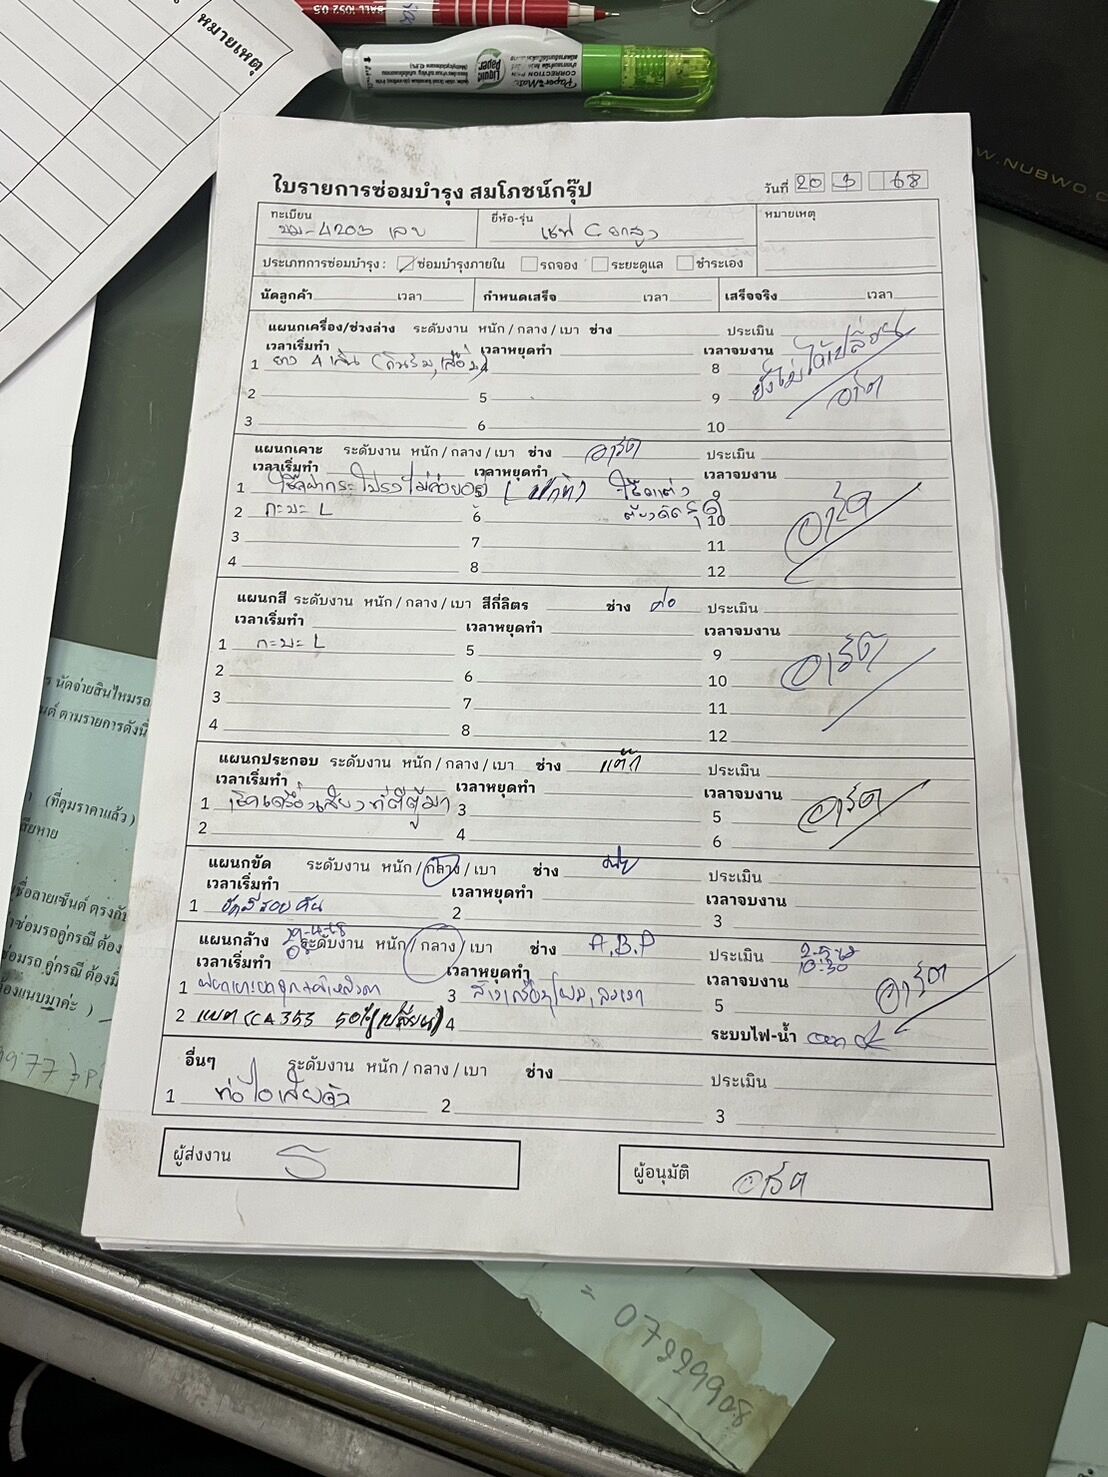 หมายเหตุ
BALL 1052 0.5
Liquid Paper
Paper Mate
CORRECTION PEN
W.NUBWO.C
ใบรายการซ่อมบำรุง สมโภชน์กรุ๊ป
วันที่ 20 3 68
ทะเบียน
ยี่ห้อ-รุ่น
หมายเหตุ
บม-4203 เลย
เชฟ C ยกสูง
ประเภทการซ่อมบำรุง : ซ่อมบำรุงภายใน รถจอง ระยะดูแล ชำระเอง
นัดลูกค้า เวลา กำหนดเสร็จ เวลา เสร็จจริง เวลา
แผนกเครื่อง/ช่วงล่าง ระดับงาน หนัก / กลาง / เบา ช่าง ประเมิน
เวลาเริ่มทำ เวลาหยุดทำ เวลาจบงาน
1 ยาง 4 เส้น 8 ยังไม่ได้เปลี่ยน
2 5 9 อาร์ต
3 6 10
แผนกเคาะ ระดับงาน หนัก / กลาง / เบา ช่าง อาร์ต ประเมิน
เวลาเริ่มทำ เวลาหยุดทำ เวลาจบงาน
1 เช็คฝากระโปรงไม่ค่อย 9
2 กะบะ L 6 10 อาร์ต
3 7 11
4 8 12
แผนกสี ระดับงาน หนัก / กลาง / เบา สีกี่ลิตร ช่าง ต่อ ประเมิน
เวลาเริ่มทำ เวลาหยุดทำ เวลาจบงาน
1 กะบะ L 5 9
2 6 10 อาร์ต
3 7 11
4 8 12
แผนกประกอบ ระดับงาน หนัก / กลาง / เบา ช่าง ประเมิน
เวลาเริ่มทำ เวลาหยุดทำ เวลาจบงาน
1 เช็คเครื่องเสียงที่ตีตู้มา 3 5 อาร์ต
2 4 6
แผนกขัด ระดับงาน หนัก / กลาง / เบา ช่าง ประเมิน
เวลาเริ่มทำ เวลาหยุดทำ เวลาจบงาน
1 ขัดสีรอบคัน 2 3
แผนกล้าง ระดับงาน หนัก / กลาง / เบา ช่าง A.B.P ประเมิน
เวลาเริ่มทำ เวลาหยุดทำ เวลาจบงาน 10:30
1 3 5 อาร์ต
2 แบต CCA 353 50% (เปลี่ยน) 4 ระบบไฟ-น้ำ
อื่นๆ ระดับงาน หนัก / กลาง / เบา ช่าง ประเมิน
1 ท่อไอเสียดัง 2 3
ผู้ส่งงาน
ผู้อนุมัติ อาร์ต
นัดจ่ายสินไหมรถ
ตามรายการดังนี้
(ที่คุมราคาแล้ว)
เสียหาย
ชื่อลายเซ็นต์ ตรงกับ
ซ่อมรถคู่กรณี ต้อง
ซ่อมรถ คู่กรณี ต้องมี
ต้องแนบมาค่ะ )
= 079299908